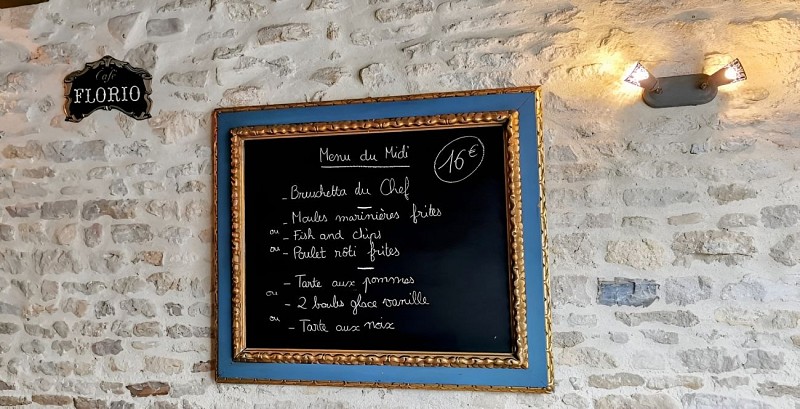 Café
FLORIO
Menu du Midi
16€
- Bruschetta du Chef
- Moules marinières frites
ou - Fish and chips
ou - Poulet rôti frites
- Tarte aux pommes
ou - 2 boules glace vanille
ou - Tarte aux noix